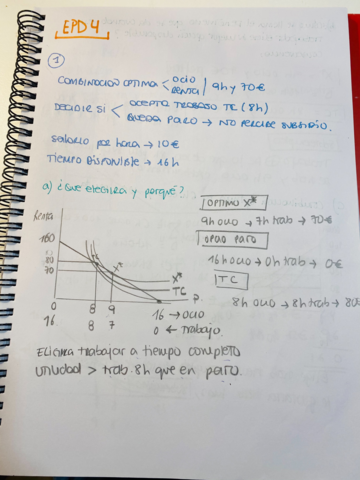 EPD 4
1
COMBINACION OPTIMA < OCIO RENTA / 9h y 70€
DECIDIR SI < ACEPTA TRABAJO TC (8h)
QUEDA PARO → NO PERCIBE SUBSIDIO.
SALARIO POR HORA → 10€
TIEMPO DISPONIBLE → 16h
a) ¿Que elegira y porqué?
OPTIMO X*
9h ocio → 7h trab → 70€
OPCIO PARO
16h ocio → 0h trab → 0€
TC
8h ocio → 8h trab → 80
Renta
160
80
70
X*
X*
TC
P.
0 8 9 16 → ocio
16 8 7 0 ← Trabajo
Elegira trabajar a tiempo completo
Utilidad > trab. 8h que en paro.